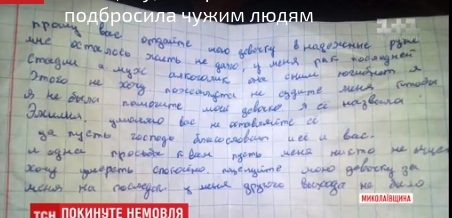 подбросила чужим людям
прошу вас отдайте мою девочку в надежные руки
мне осталось жить не долго, у меня рак последней
стадии а муж алкоголик она с ним погибнет я
этого не хочу пожалуйста не судите меня
я не была помогите моей девочке. Я её назвала
умоляю вас не оставляйте её
да пусть господь благословит и её и вас.
и одна просьба к вам пусть меня никто не ищет
хочу умереть спокойно. поцелуйте мою девочку за
меня на последок у меня другого выхода не было
МИКОЛАЇВЩИНА
ТСН ПОКИНУТЕ НЕМОВЛЯ